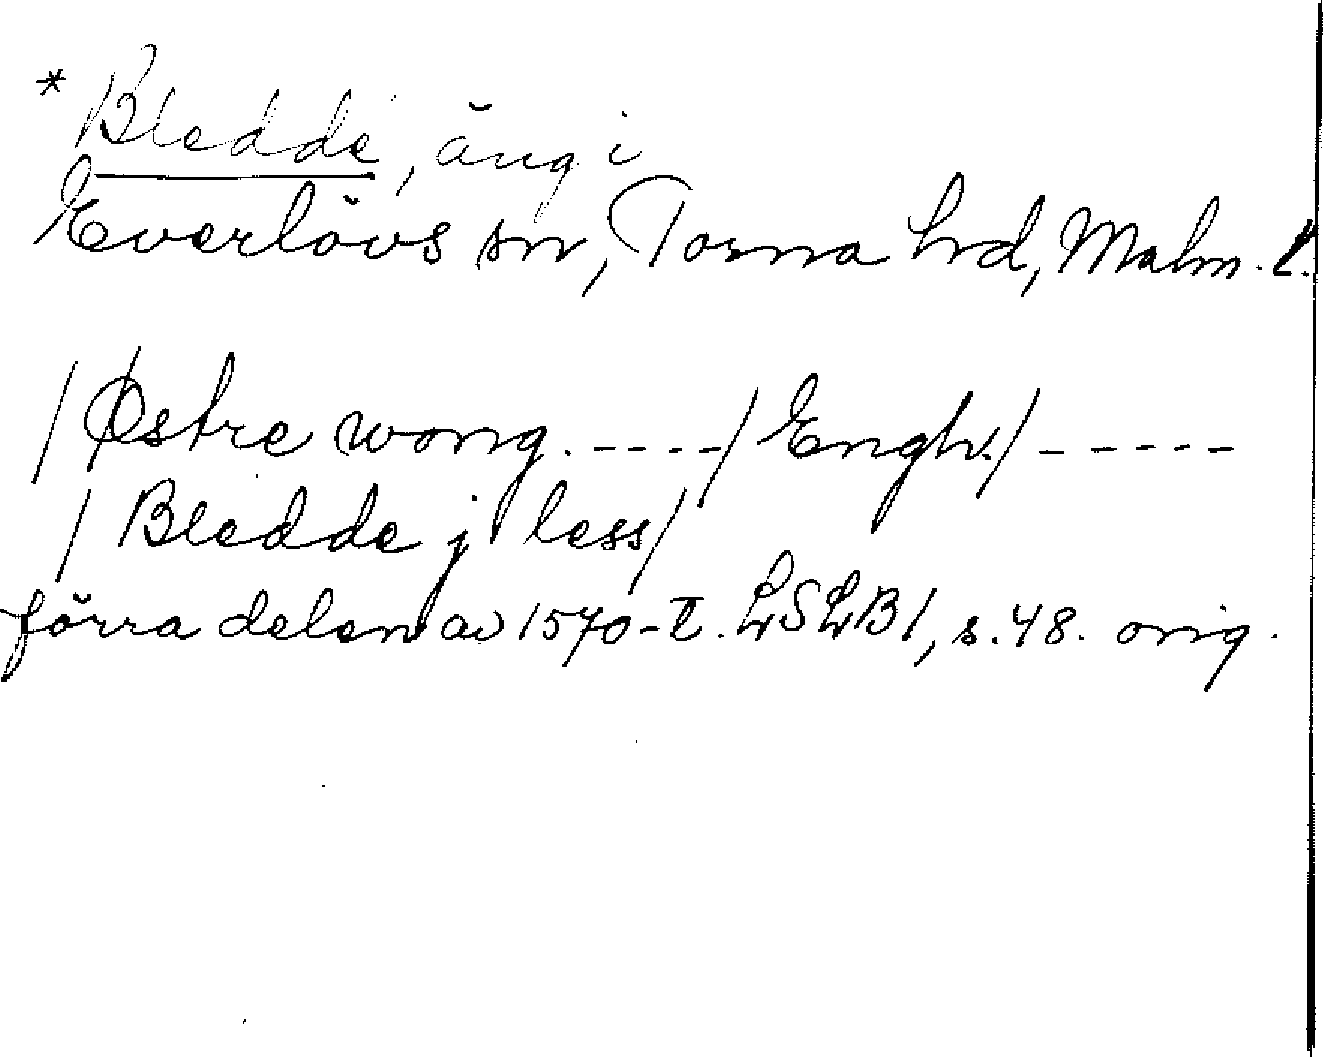 * Bledde, äng i
Everlövs sn, Torna hd, Malm. l.
/ Østre wong. ----/ Engh./ -----
/ Bledde j less/
förra delen av 1570-t. LSLB 1, s. 48. orig.